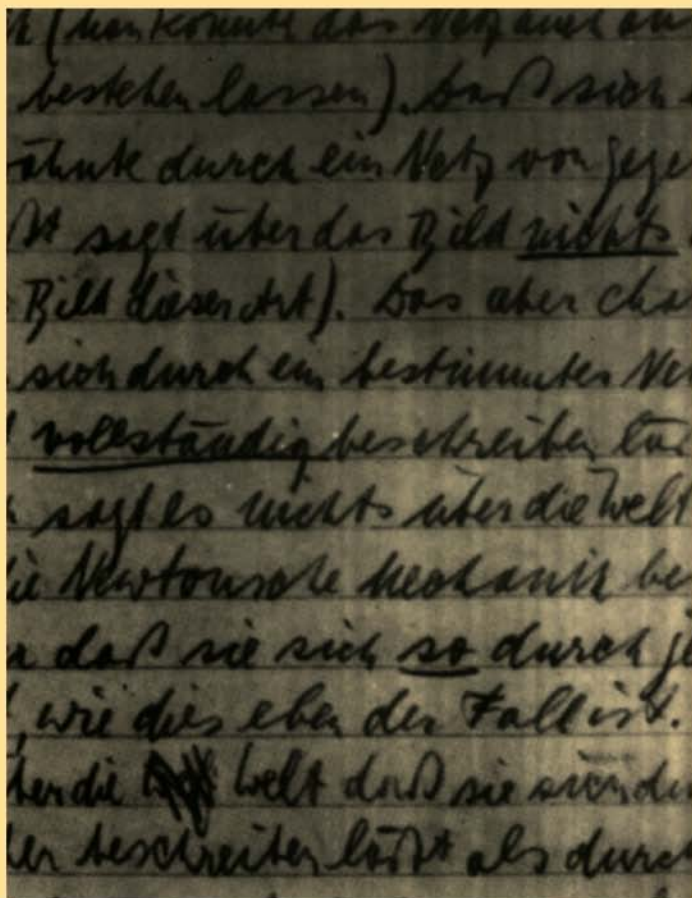 (man könnte das Netz auch aus
bestehen lassen). Daß sich
ähnte durch ein Netz von gege
ßt sagt über das Bild nichts
Bild dieser Art). Das aber cha
sich durch ein bestimmtes Ne
vollständig beschreiben läß
sagt es nichts über die Welt
ie Newtonsche Mechanik be
daß sie sich so durch je
, wie dies eben der Fall ist.
ber die Welt daß sie sich du
er beschreiben läßt als durch